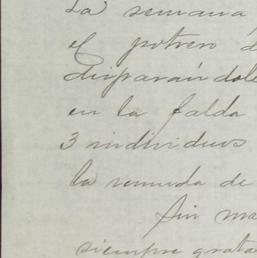 La semana
el potrero d
disparandole
en la falda
3 individuos
la remuda de
Sin ma
siempre grata